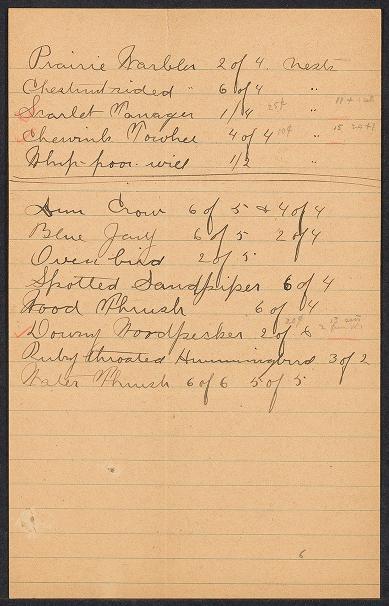 Prairie Warbler 2 of 4. nests
Chestnut sided " 6 of 4 "
Scarlet Tanager 1/4 25¢ "
Chewink Towhee 4 of 4 10¢ "
Whip-poor-will 1/2 "
Am Crow 6 of 5 & 4 of 4
Blue Jay 6 of 5 2 of 4
Oven bird 2 of 5
Spotted Sandpiper 6 of 4
Wood Thrush 6 of 4
Downy Woodpecker 2 of 6 20¢
Ruby throated Hummingbird 3 of 2
Water Thrush 6 of 6 5 of 5
6